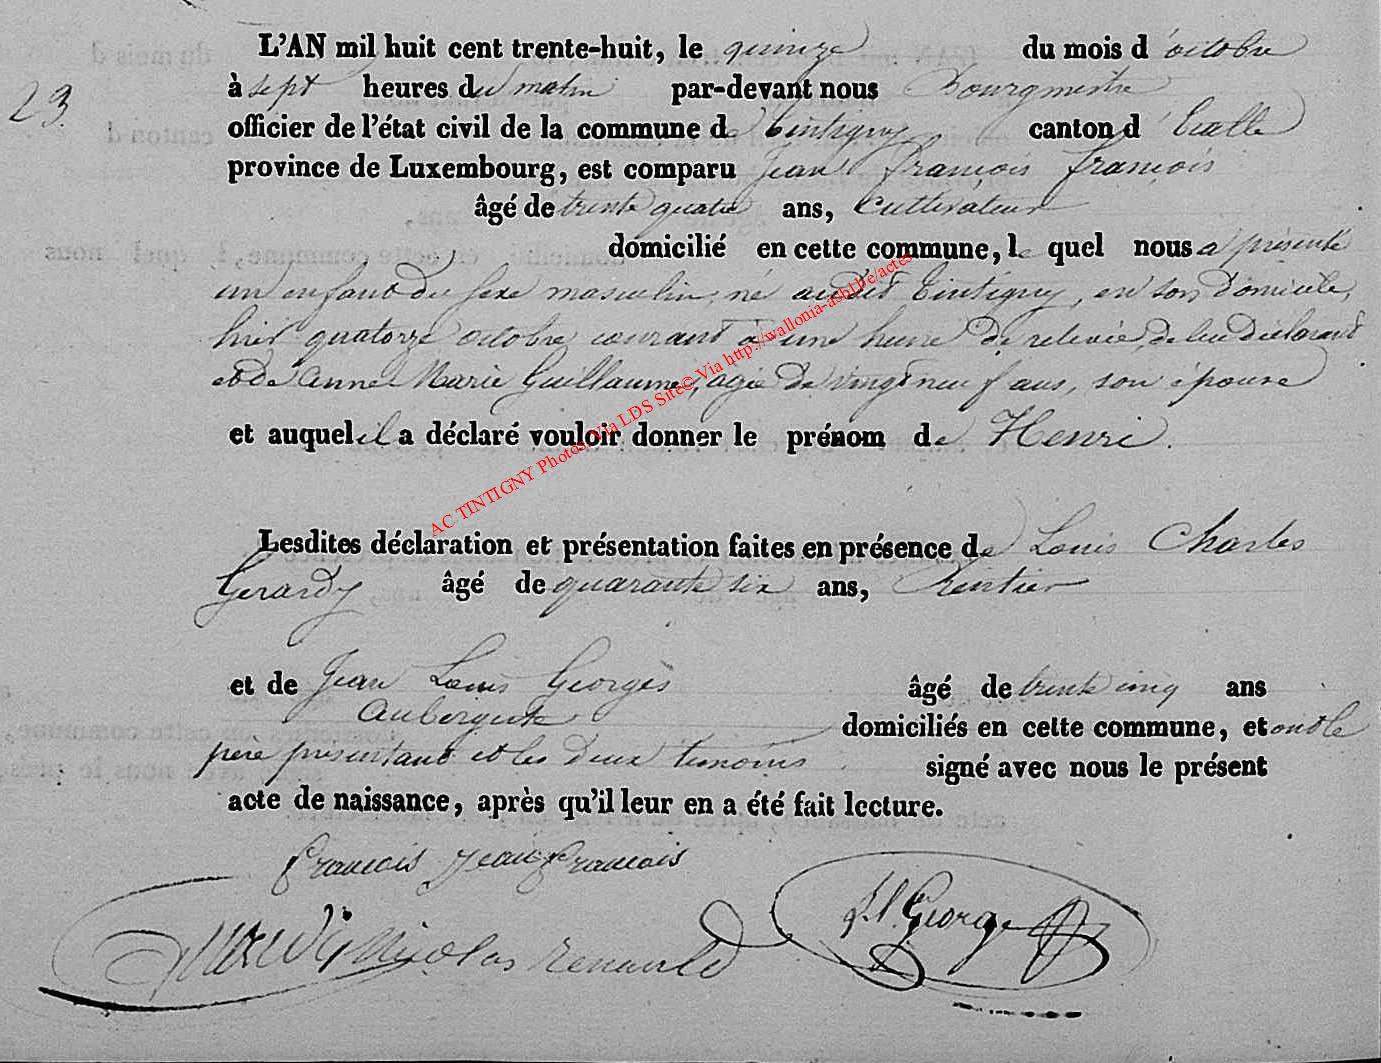 L'AN mil huit cent trente-huit, le quinze du mois d'octobre
23.
à sept heures du matin par-devant nous Bourgmestre
officier de l'état civil de la commune de Tintigny canton d'Etalle
province de Luxembourg, est comparu Jean François François
âgé de trente quatre ans, Cultivateur
domicilié en cette commune, le quel nous a présenté
un enfant du sexe masculin, né audit Tintigny, en son domicile,
hier quatorze octobre courant à une heure de relevée, de lui déclarant
et de Anne Marie Guillaume, agée de vingt neuf ans, son épouse
et auquel il a déclaré vouloir donner le prénom de Henri.
AC TINTIGNY Photos Via LDS Site© Via http://wallonia-asbl.be/actes
Lesdites déclaration et présentation faites en présence de Louis Charles
Gerardy âgé de quarante six ans, Rentier
et de Jean Louis Georges âgé de trente cinq ans
Aubergiste domiciliés en cette commune, et ont le
père présentant et les deux temoins signé avec nous le présent
acte de naissance, après qu'il leur en a été fait lecture.
François Jean François
Nicolas renauld
J. l. George